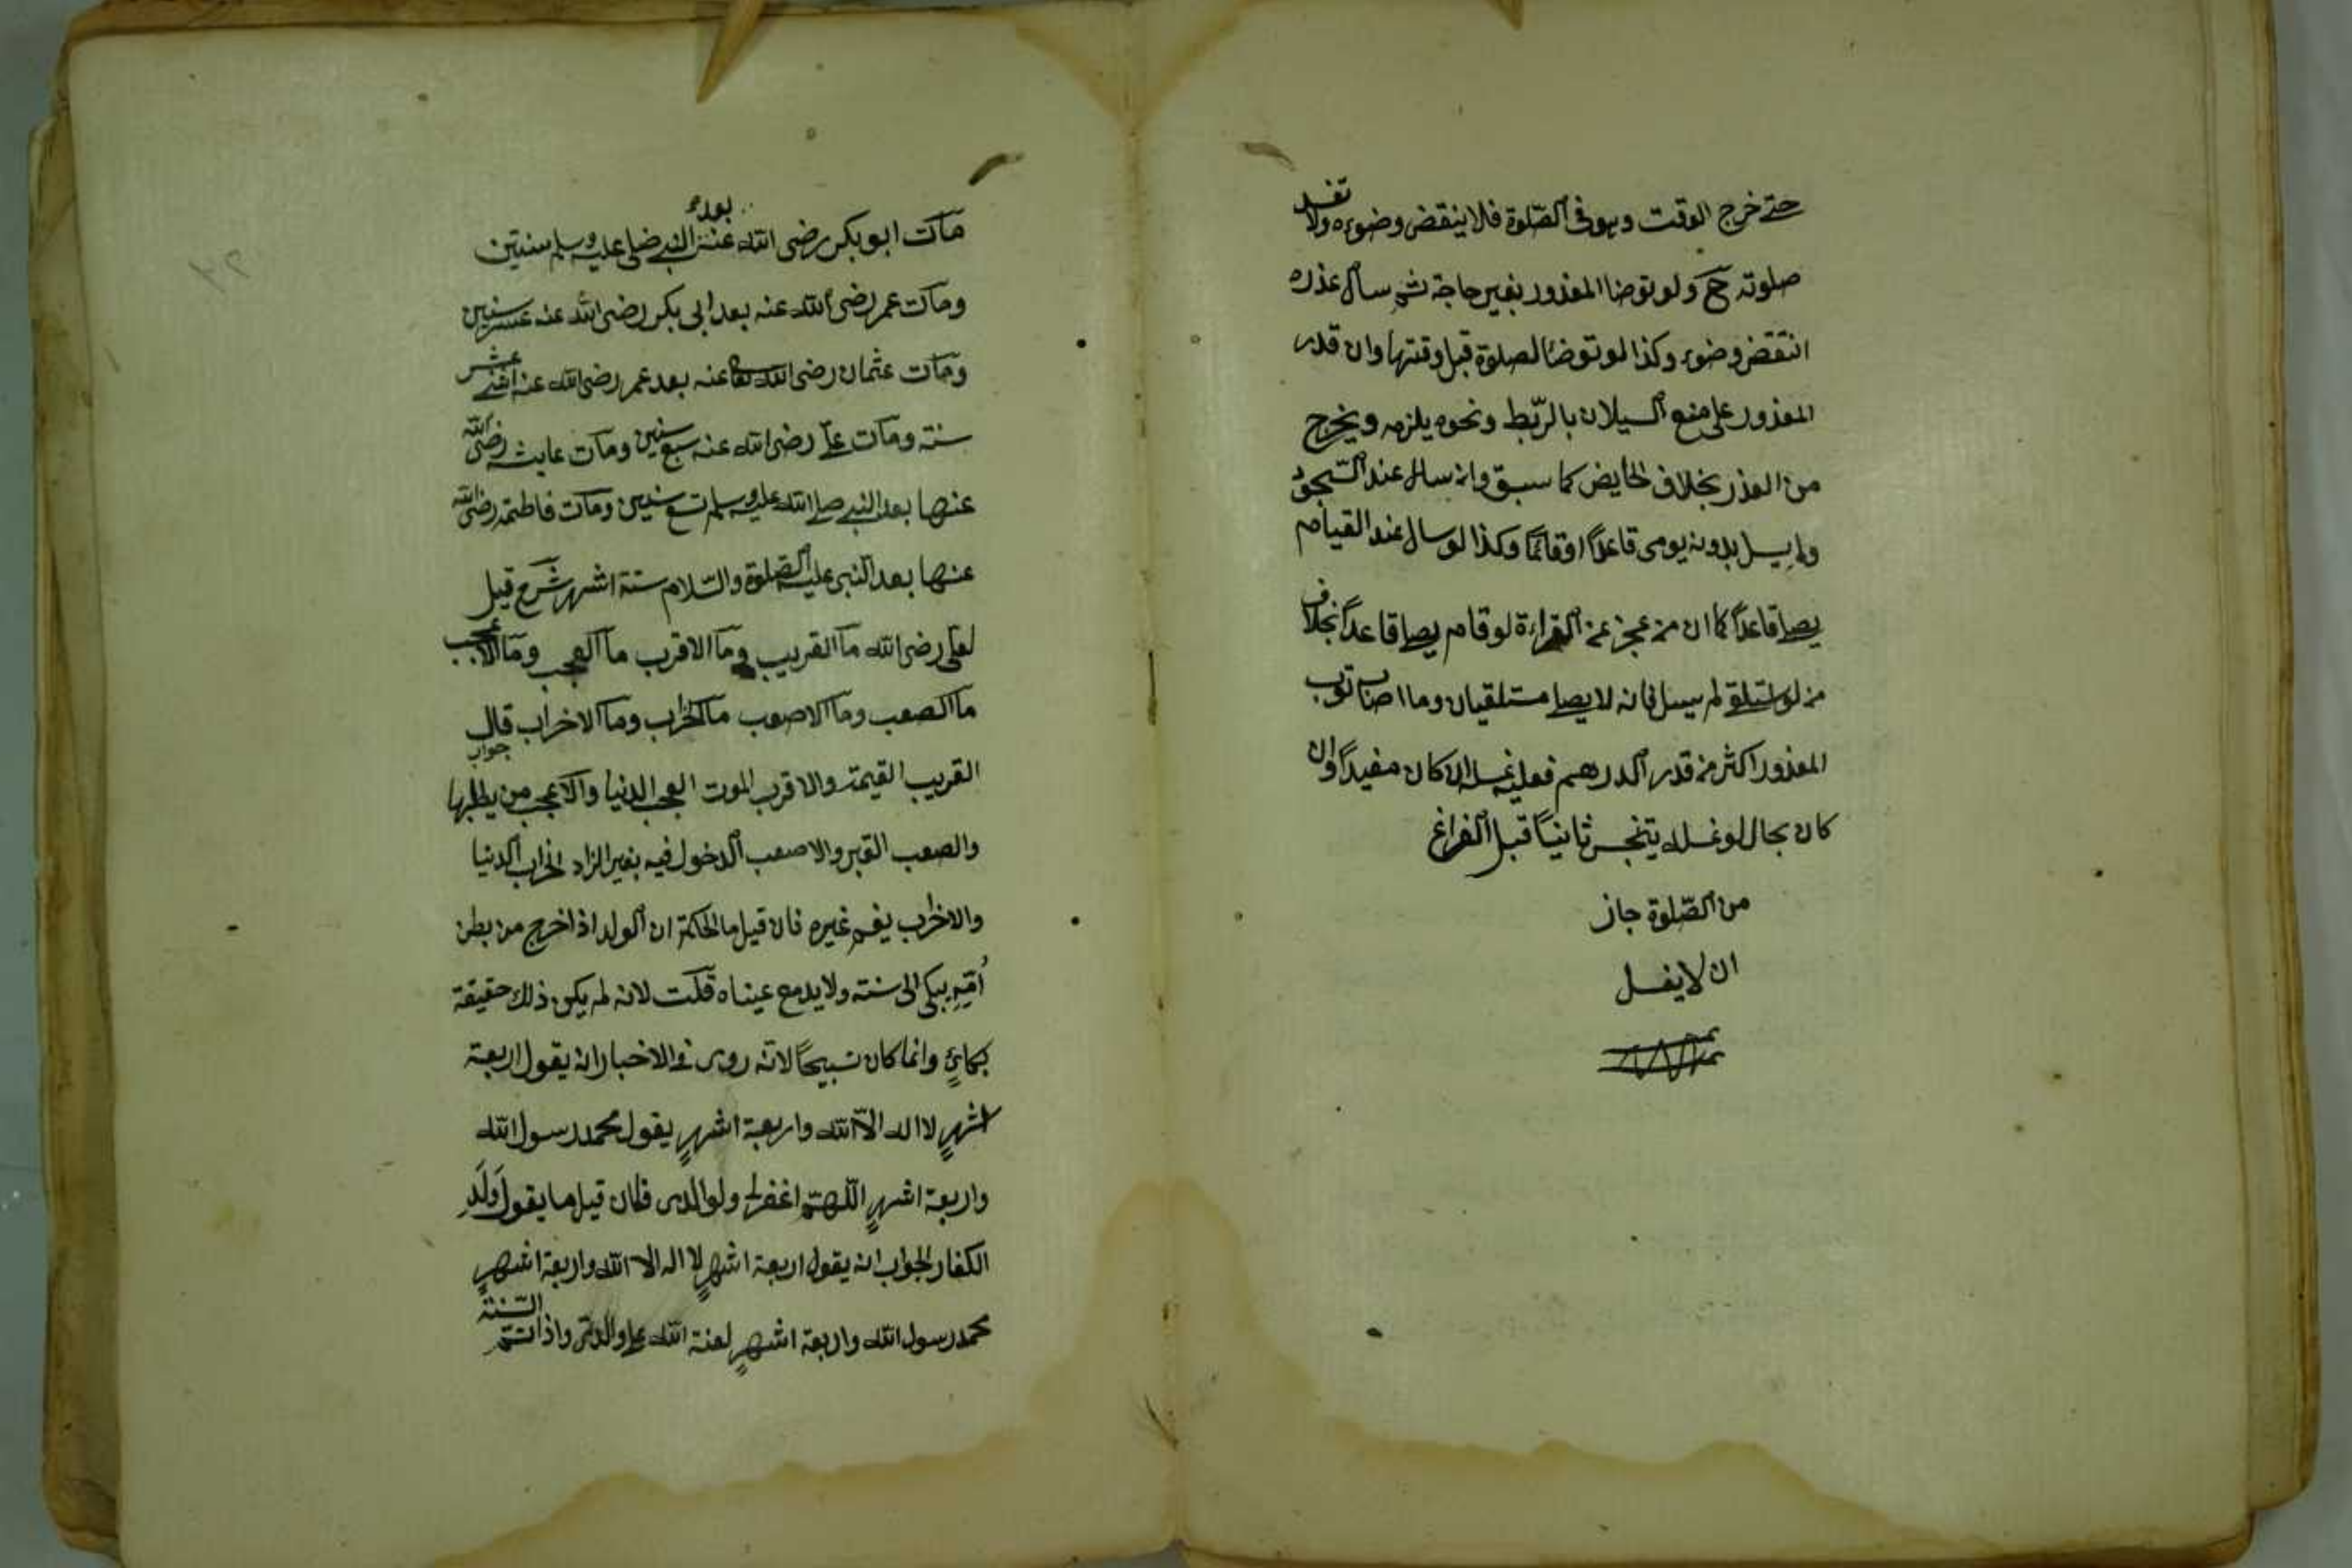 حتى خرج الوقت وهو فى الصّلوة فلا ينقض وضوءه ولا تفسد
صلوته ح ولو توضا المعذور بغير حاجة ثم سال عذره
انتقض وضوءه وكذا لو توضا لصلوة قبل وقتها وان قدر
المعذور على منع السيلان بالرّبط ونحوه يلزمه ويخرج
من العذر بخلاف الحايض كما سبق وان سال عند السّجود
ولم يسل بدونه يومى قاعدًا او قائمًا وكذا لو سال عند القيام
يصلى قاعدًا كما ان من عجز عن القراءة لو قام يصلى قاعدًا بخلاف
من لو استلقى لم يسل فانه لا يصلى مستلقيان وما اصاب ثوب
المعذور اكثر من قدر الدرهم فعليه غسله ان كان مفيدًا وان
كان بحال لو غسله يتنجس ثانيًا قبل الفراغ
من الصّلوة جاز
ان لا يغسل
مات ابو بكر رضى الله عنه بعد النبى صلى عليه وسلم سنتين
ومات عمر رضى الله عنه بعد ابى بكر رضى الله عنه عشر سنين
ومات عثمان رضى الله تعا عنه بعد عمر رضى الله عنه اثنى عشر
سنة ومات على رضى الله عنه سبع سنين ومات عايشه رضى الله
عنها بعد النبى صلى الله عليه وسلم تسع سنين ومات فاطمة رضى الله
عنها بعد النبى عليه الصّلوة والسّلام ستة اشهر شرح قيل
لعلى رضى الله ما القريب وما الاقرب ما العجب وما الاعجب
ما الصعب وما الاصعب ما الخراب وما الاخراب قال
جواب
القريب القيمة والاقرب الموت العجب الدنيا والاعجب من يطلبها
والصعب القبر والاصعب الدخول فيه بغير الزاد الخراب الدنيا
والاخراب غيره فان قيل ما الحكمة ان الولد اذا خرج من بطن
اُمّهِ يبكى الى سنة ولا يدمع عيناه قلت لانه لم يكن ذلك حقيقة
بكاءٍ وانما كان تسبيحًا لانّه روى فى الاخبار انه يقول اربعة
اشهرٍ لا اله الاّ الله واربعة اشهرٍ يقول محمد رسول الله
واربعة اشهرٍ اللّهمّ اغفر لى ولوالدى فان قيل ما يقول وَلَدِ
الكفار الجواب انه يقول اربعة اشهرٍ لا اله الا الله واربعة اشهرٍ
محمد رسول الله واربعة اشهرٍ لعنة الله على والدىّ واذا تمّ السّنة